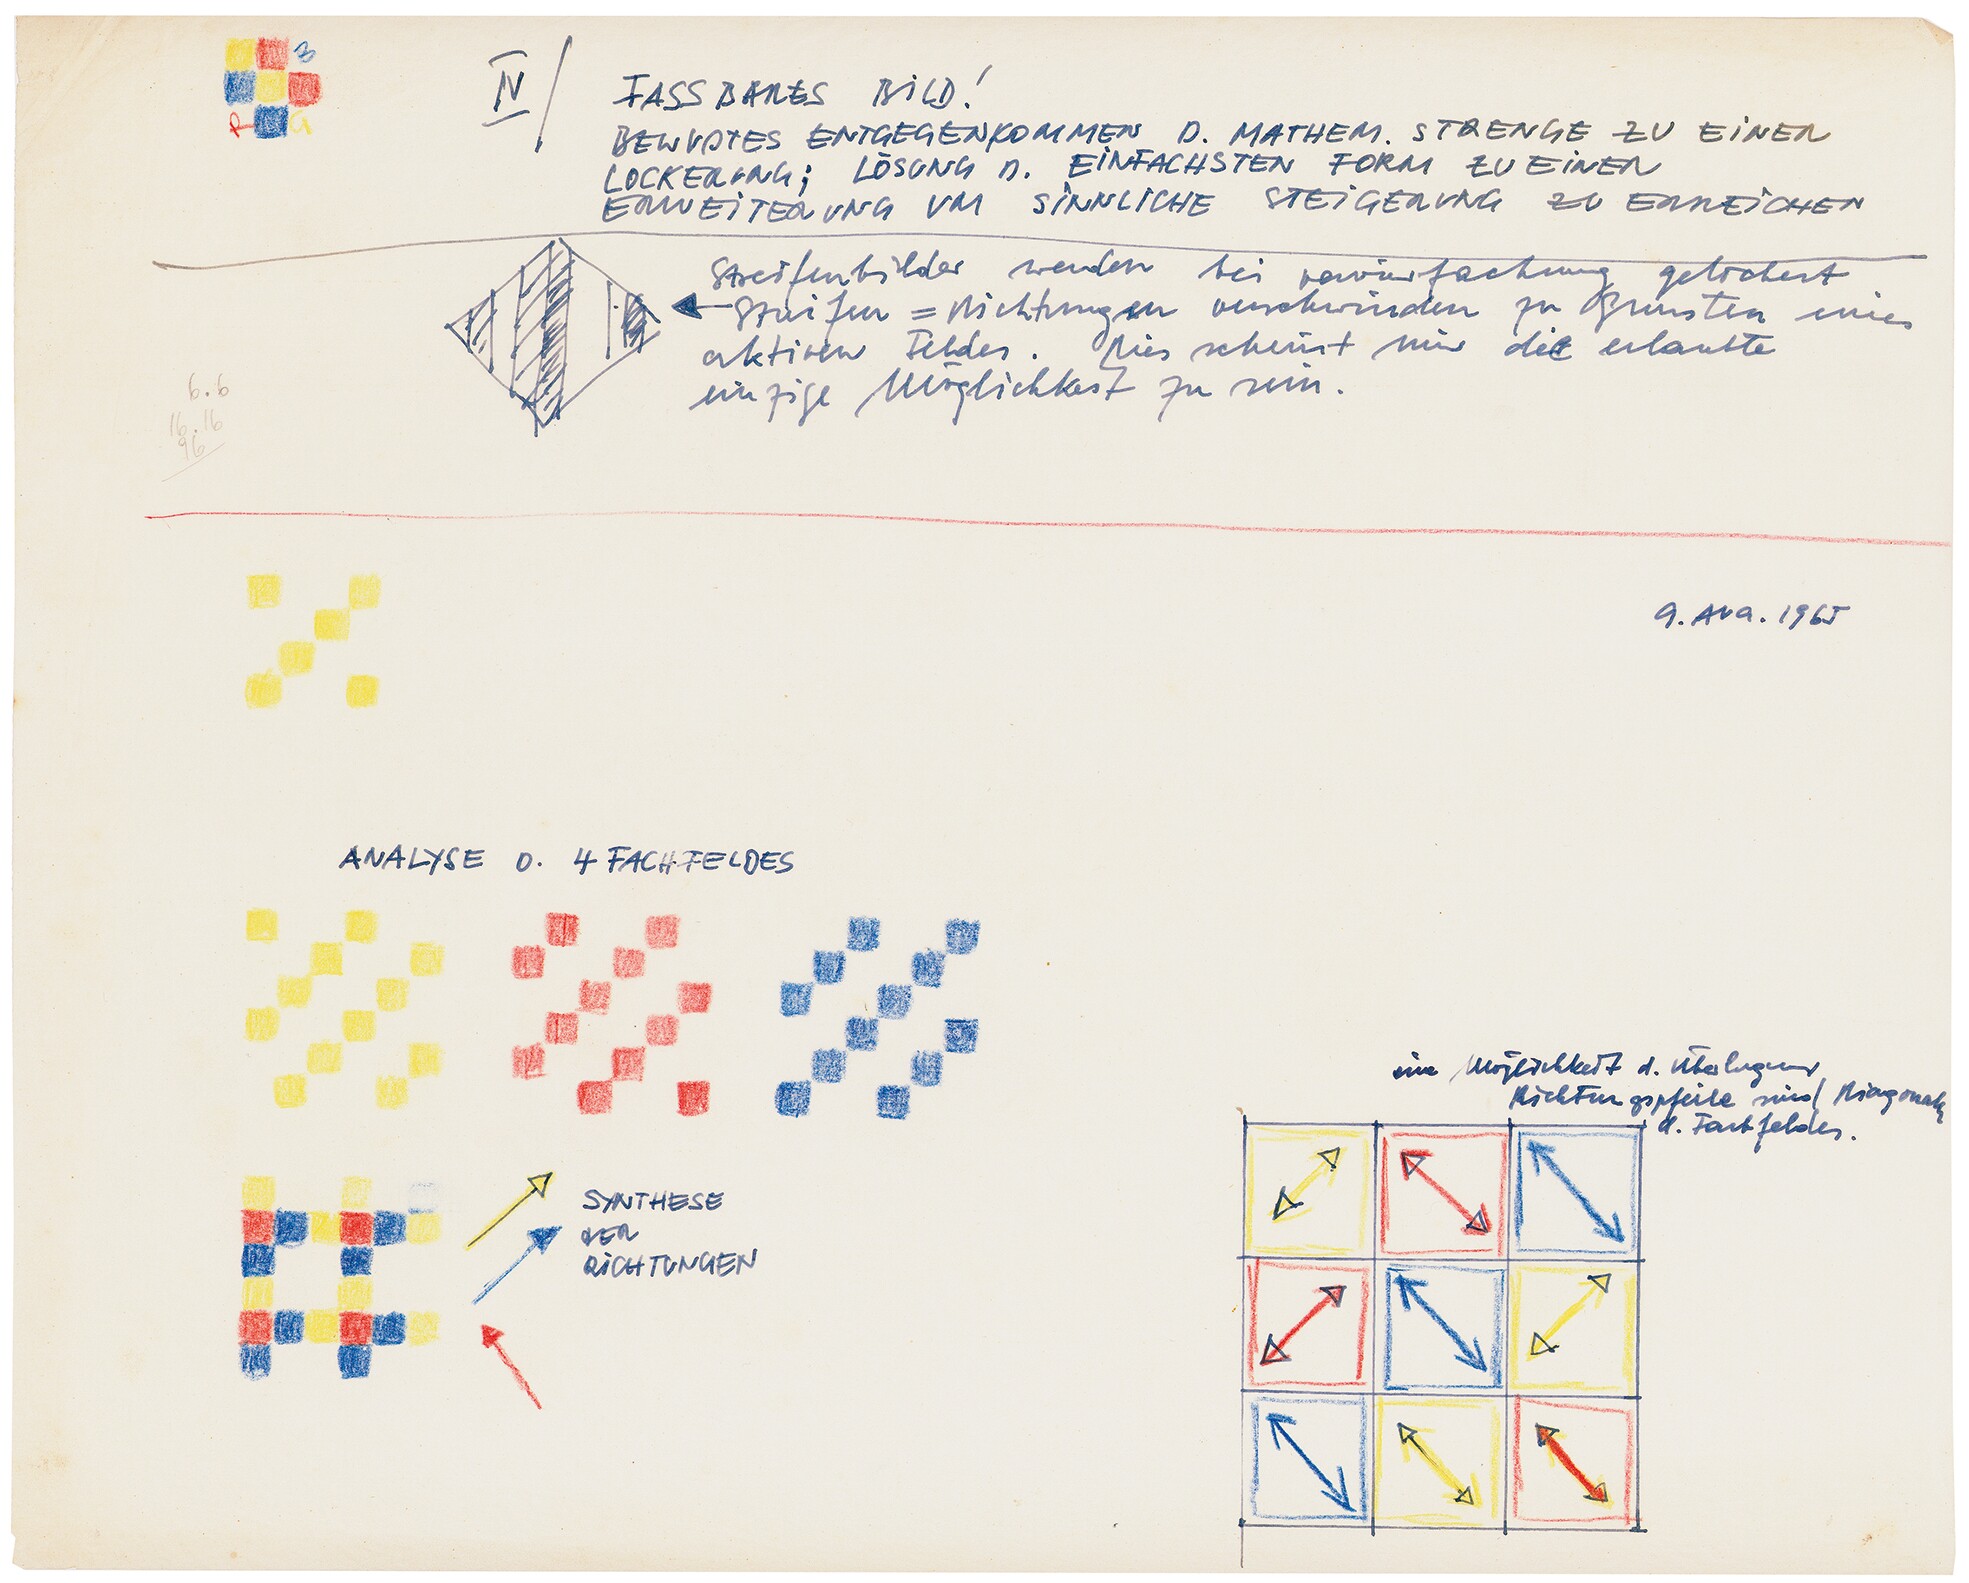 B
R G
IV/
FASSBARES BILD!
BEWUSTES ENTGEGENKOMMEN D. MATHEM. STRENGE ZU EINER
LOCKERUNG; LÖSUNG D. EINFACHSTEN FORM ZU EINER
ERWEITERUNG UM SINNLICHE STEIGERUNG ZU ERREICHEN
Streifenbilder werden bei gelockert
Streifen = Richtungen verschwinden zu Gunsten eines
aktiven Feldes. Dies scheint mir die erlaubte
einzige Möglichkeit zu sein.
6.6
16.16
96
9. AUG. 1965
ANALYSE D. 4 FACHFELDES
SYNTHESE
DER
RICHTUNGEN
eine Möglichkeit d. Überlegung
Richtungspfeile sind Diagonale
d. Farbfeldes.